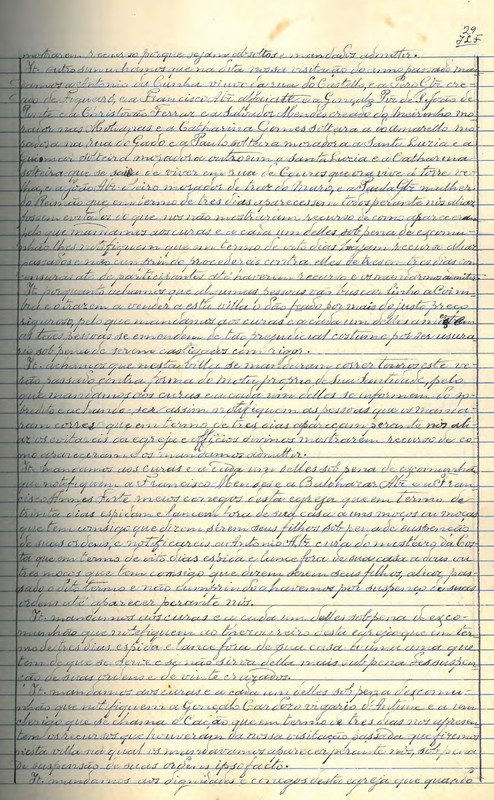 29
mostrarem recurso porque sejam absoltos e mandados admittir.
It. outro sim achamos que na dita nossa visitação do anno passado man-
damos a Antonio da Cunha viuvo da rua do Castello, e a Pero Alz cre-
de Figueiró, e a Francisco Alz e a Gonçalo Piz de S. João de
Ponte e a Christovão Ferraz e a Salvador Mendes creado do Meirinho mo-
rador nas Molianas e a Catharina Gomes solteira e do amarello mo-
radora na rua do Gado e a Paulo solteira moradora a Santa Luzia e a
solteira moradora outro sim a Santa Luzia e a Catharina
solteira que se saiu de viver em rua de Couros que ora vive á torre ve-
lha, e a João Alz morador de traz do Muro, e a Alz mulher
do que em termo de tres dias aparecessem todos perante nós aliaz
fossem evitados o que nos não mostraram recurso de como apareceram
pelo que mandamos aos curas e a cada um delles sob pena de excomu-
nhão lhes notifiquem que em termo de oito dias hajam recurso aliaz
passados e não cumprindo procederaes contra elles de tres em tres dias com
censuras até de participantes até haverem recurso e os mandarmos admittir.
It. porquanto achamos que algumas pessoas vão buscar linho a Coim-
bra e o trazem a vender a esta villa e o dão fiado por mais do justo preço
riguroso, pelo que mandamos aos curas e a cada um delles
as taes pessoas se emendem de tão prejudicial costume por ser usura-
rio sob pena de serem castigados com rigor.
It. achamos que nesta villa se mandaram correr touros este ve-
rão passado contra forma do motu proprio de Sua Santidade, pelo
que mandamos aos curas e a cada um delles se informem do so-
bredito e achando ser assim notifiquem as pessoas que os manda-
ram correr que em termo de tres dias apareçam perante nós ali-
az os evitaraes da egreja e officios divinos mostrarem recurso de co-
mo apareceram e os mandamos admittir.
It. mandamos aos curas e a cada um delles sob pena de excomunhão
que notifiquem a Francisco Menezes e a Balthazar Alz e a Fran-
cisco Annes Forte meios conegos desta egreja que em termo de
trinta dias espidam e lancem fora de sua casa a uns moços ou moças
que tem consigo que dizem serem seus filhos sob pena de suspenção
de suas ordens, e notificareis a Antonio Alz cura do mosteiro da Cos-
ta que em termo de oito dias espida e lance fora de sua casa a dous ou
tres moços que tem consigo que dizem serem seus filhos, aliaz, pas-
sado o dito termo e não cumprindo o havemos por suspenço de suas
ordens até aparecer perante nós.
It. mandamos aos curas e a cada um delles sob pena de exco-
munhão que notifiquem ao thezoureiro desta egreja que em ter-
mo de tres dias espida e lance fora de sua casa a uma ama que
tem de que se serve e se não sirva della mais sub pena de suspen-
ção de suas ordens e de vinte cruzados.
It. mandamos aos curas e a cada um delles sob pena de excomu-
nhão que notifiquem a Gonçalo Cardozo vigario d'Antime e a um
clerigo que se chama o Cação que em termo de tres dias nos apresen-
tem os recursos que houveram da nossa visitação passada que fizemos
nesta villa na qual os mandavamos aparecer perante nós, sob pena
de suspensão de suas ordens ipso facto.
It. mandamos aos dignidades e conegos desta egreja que quando